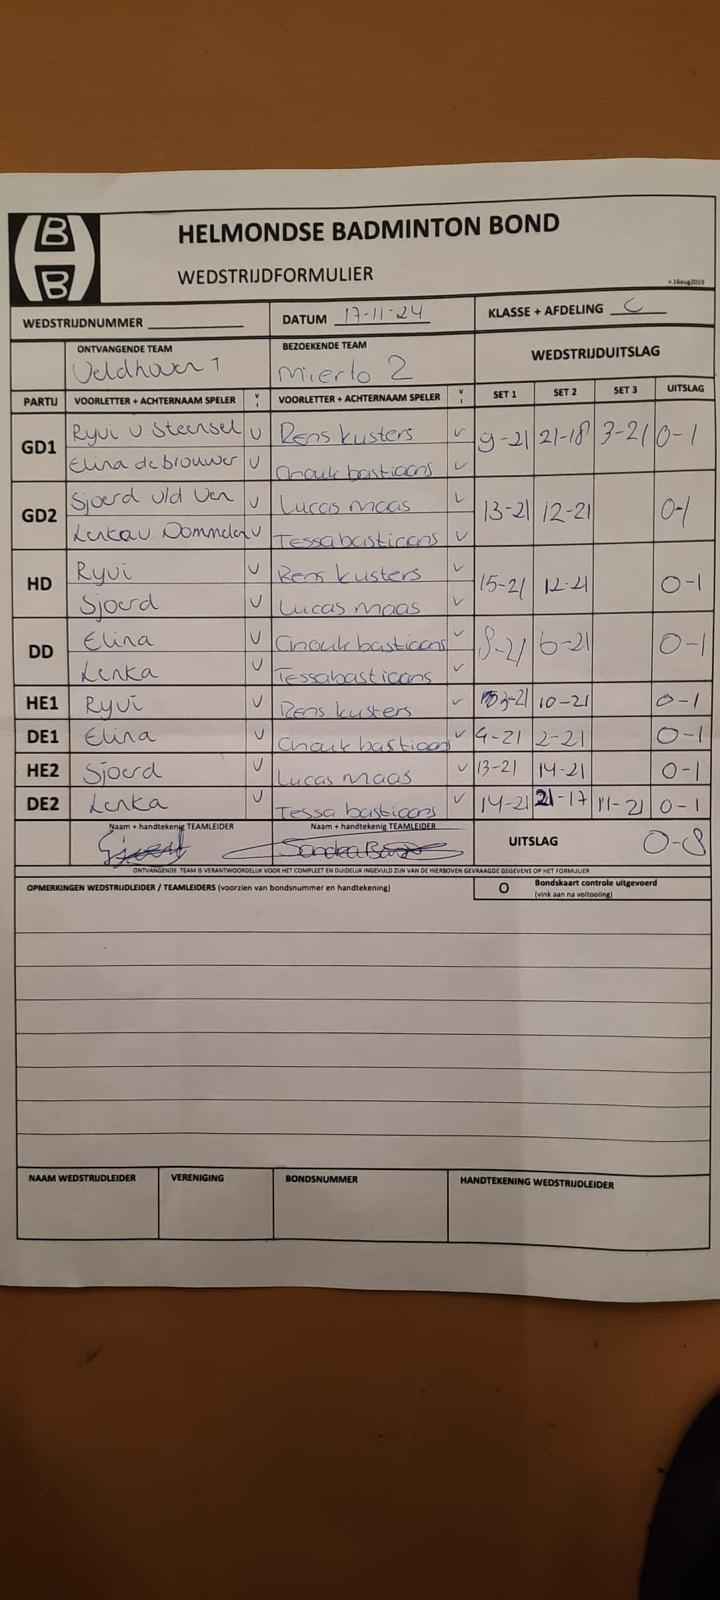 B
H
B
HELMONDSE BADMINTON BOND
WEDSTRIJDFORMULIER
v.16aug2019
WEDSTRIJDNUMMER
DATUM 17-11-24
KLASSE + AFDELING C
ONTVANGENDE TEAM
Veldhoven 1
BEZOEKENDE TEAM
Mierlo 2
WEDSTRIJDUITSLAG
PARTIJ VOORLETTER + ACHTERNAAM SPELER V I VOORLETTER + ACHTERNAAM SPELER V I SET 1 SET 2 SET 3 UITSLAG
GD1 Ryui v Steensel V Rens kusters V 9-21 21-18 3-21 0-1
Elina de brouwer V Anouk bastiaans
GD2 Sjoerd v/d Ven V Lucas maas V 13-21 12-21 0-1
Lenka v Dommelen V Tessa bastiaans V
HD Ryui V Rens kusters V 15-21 12-21 0-1
Sjoerd V Lucas maas V
DD Elina V Anouk bastiaans V 8-21 6-21 0-1
Lenka V Tessa bastiaans V
HE1 Ryui V Rens kusters V 3-21 10-21 0-1
DE1 Elina V Anouk bastiaans V 4-21 2-21 0-1
HE2 Sjoerd V Lucas maas V 13-21 14-21 0-1
DE2 Lenka V Tessa bastiaans V 14-21 21-17 11-21 0-1
Naam + handtekenig TEAMLEIDER
Naam + handtekenig TEAMLEIDER
UITSLAG 0-8
ONTVANGENDE TEAM IS VERANTWOORDELIJK VOOR HET COMPLEET EN DUIDELIJK INGEVULD ZIJN VAN DE HIERBOVEN GEVRAAGDE GEGEVENS OP HET FORMULIER
OPMERKINGEN WEDSTRIJDLEIDER / TEAMLEIDERS (voorzien van bondsnummer en handtekening)
O Bondskaart controle uitgevoerd
(vink aan na voltooiing)
NAAM WEDSTRIJDLEIDER VERENIGING BONDSNUMMER HANDTEKENING WEDSTRIJDLEIDER